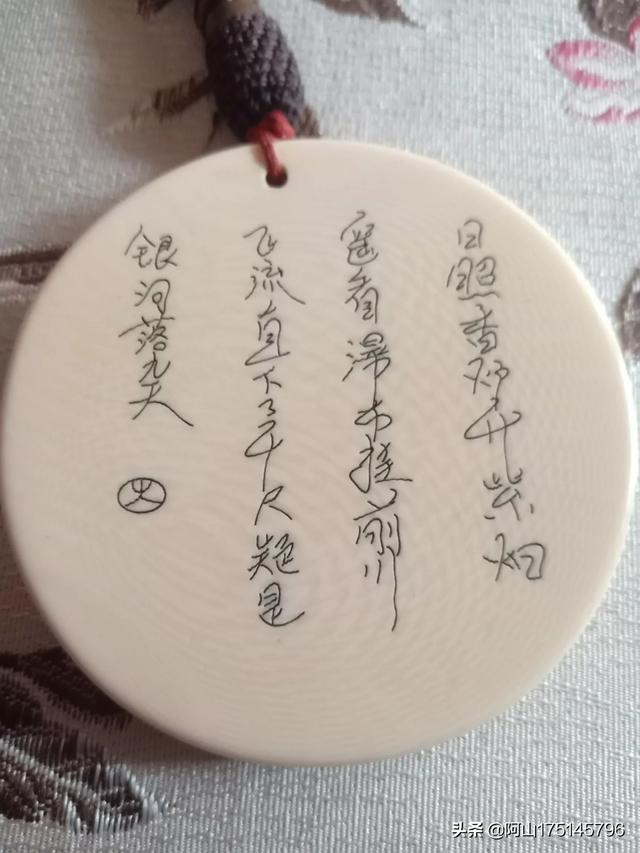 日照香炉升紫烟
遥看瀑布挂前川
飞流直下三千尺疑是
银河落九天
头条 @阿山175145796